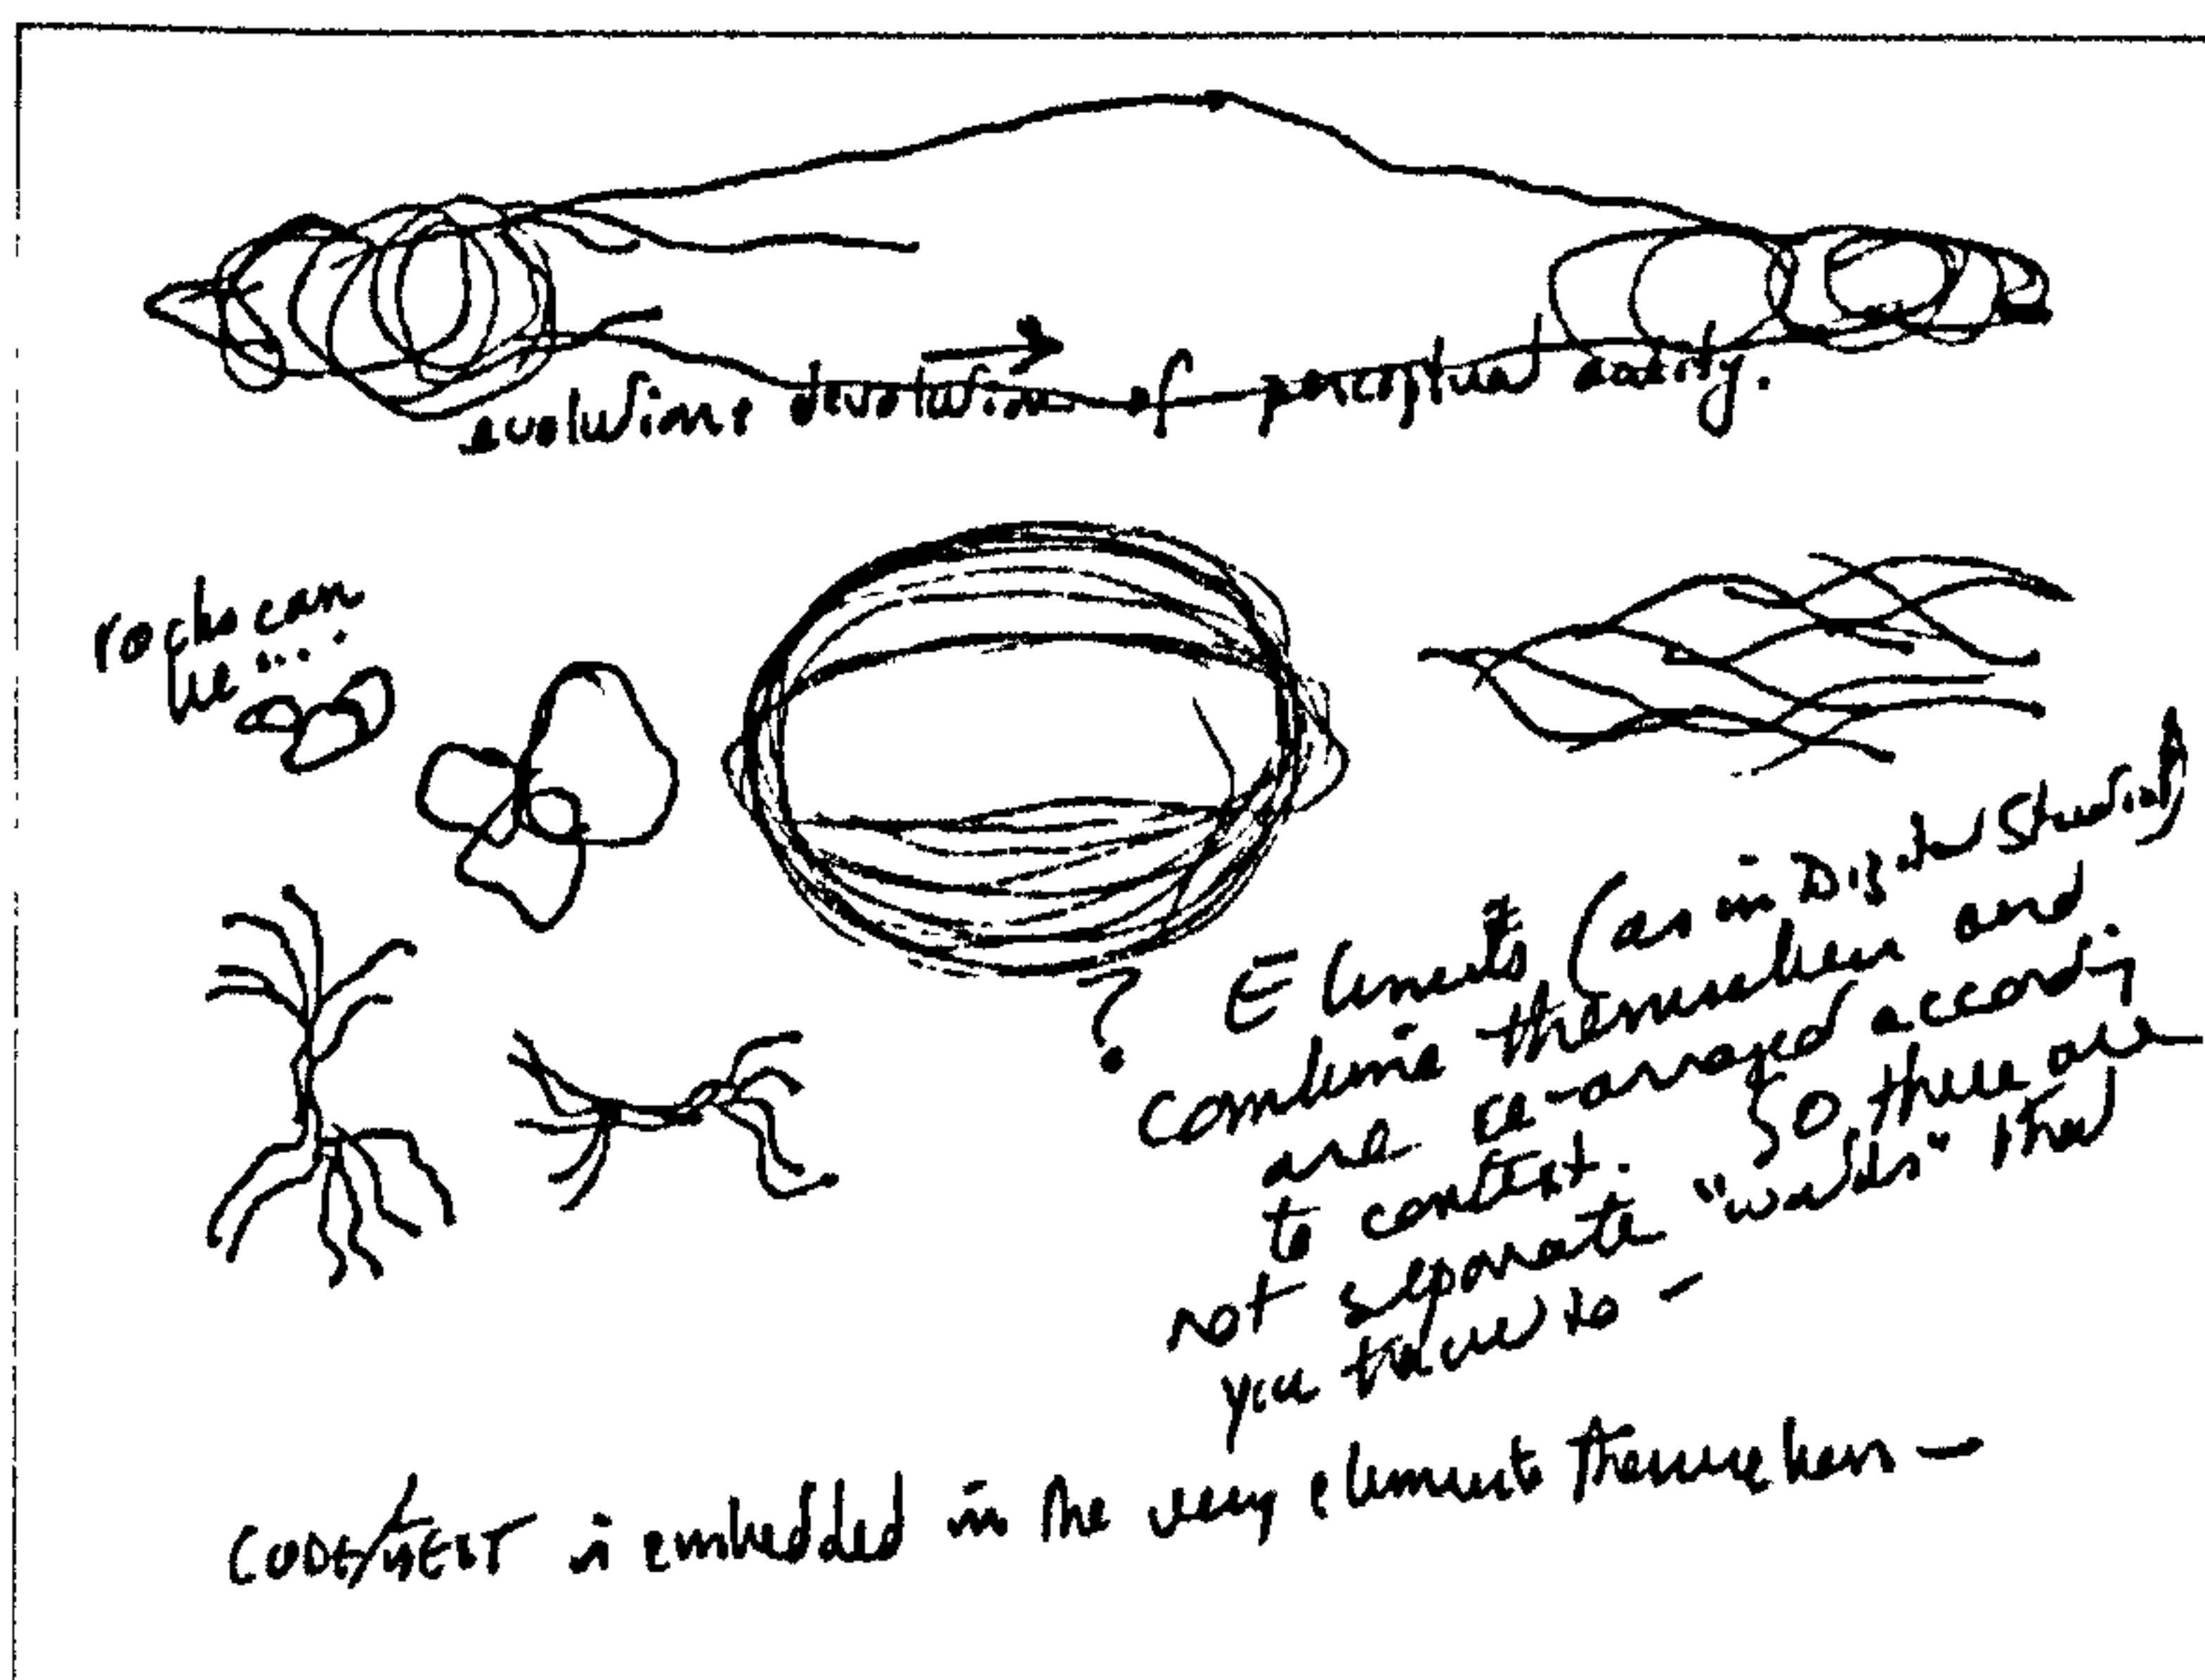 evolution: devolution of perceptual acuity.
rocks can
be ....
?
Elements (as in Digital Studies)
combine themselves and
are re-arranged according
to context. So there are
not separate "worlds" that
you travel to -
is embedded in the very elements themselves —